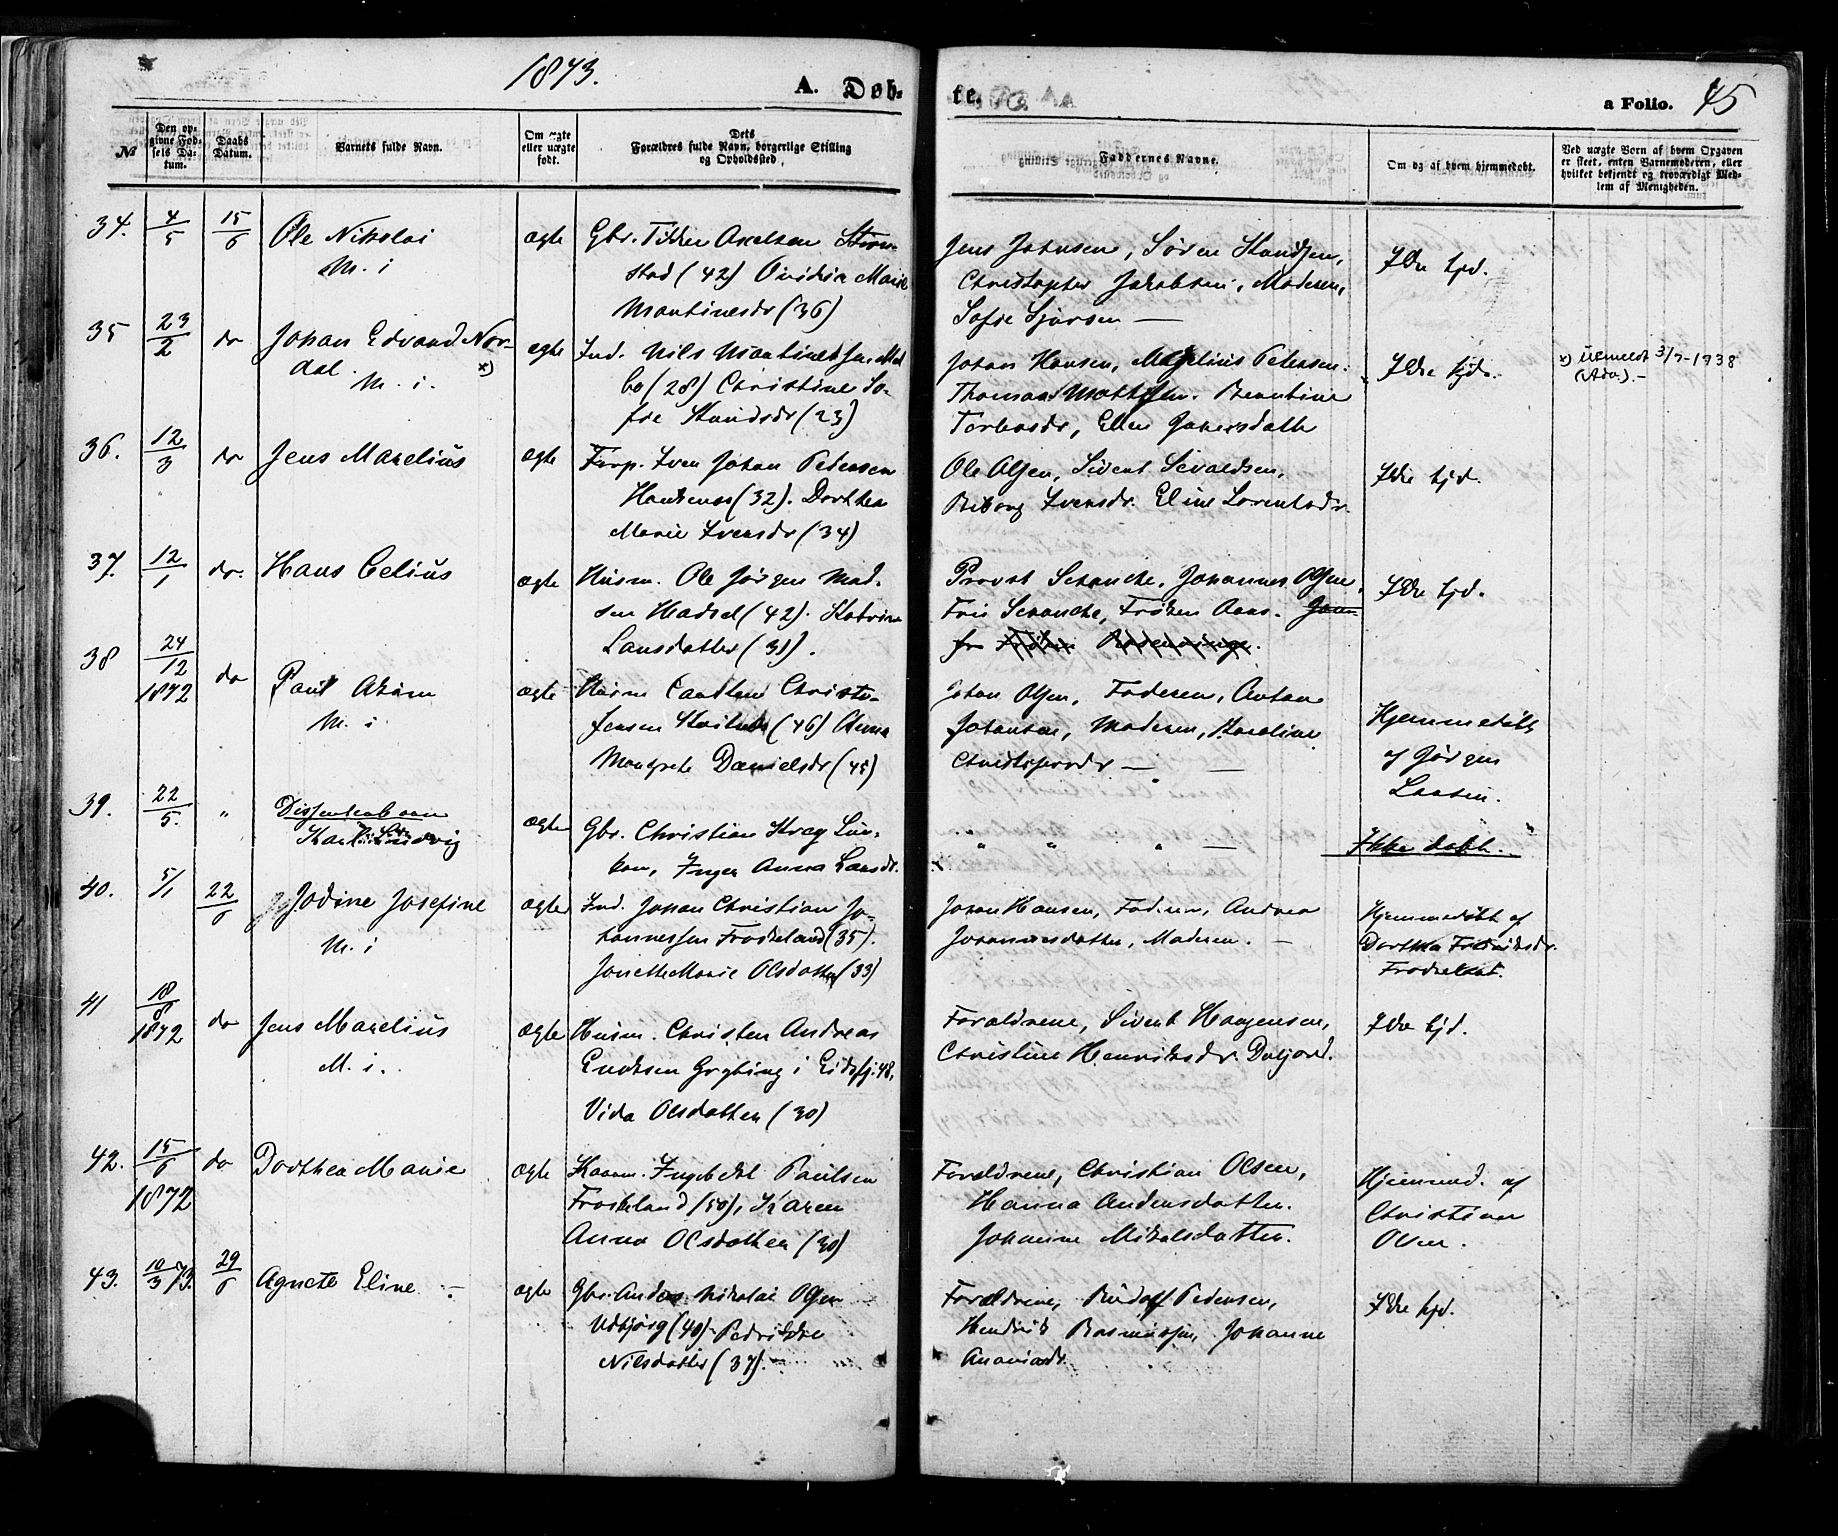 1873.
A. Døb-
te.
a Folio. 45
№
Den op-
givne Fød-
sels Da-
tum.
Daabs
Datum.
Barnets fulde Navn.
Om ægte
eller uægte
født.
Dets
Forældres fulde Navn, borgerlige Stilling
og Opholdssted.
Faddernes Navne.
Om og af hvem hjemmedøbt.
Ved uægte Børn af hvem Opgaven
er skeet, enten Barnemoderen, eller
hvilket bekjendt og troværdigt Med-
lem af Menigheden.
34. 4/5 15/6 Ole Nikolai
M. i
ægte
Gbr. Axelsen
stad (42) Marie
Martinesdr (36)
Jens Johnsen, Søren
Christopher Jakobsen, Moderen,
Sofie Sjursen —
Ikke hjd.
35 23/2 do Johan Edvard Nor-
dal. x)
M. i.
ægte
Ind. Nils Martinussen Mel
bo (28) Christine So-
fie (23)
Johan Hansen, Petersen.
Thomas Berntine
Ellen
Ikke hjd.
x) Utmeldt 3/7-1938
(Adv.).-
36. 12/3 do Jens Marelius
ægte
Iver Johan Pedersen
(32). Dorthea
Marie Iversdr (34)
Ole Olsen, Sivert Sivaldsen,
Iversdr. Eline Lorentsdr.
Ikke hjd.
37. 12/1 do. Hans Celius
ægte
Husm. Ole Jørgen Mad-
sen Hadsel (42). Katrine
Larsdatter (31).
Provst Schanche, Johannes Olsen,
Fris Schanche, Frøken Aas.
Ikke hjd.
38 24/12
1872
do
Paul
M. i
ægte
Husm Christo-
fersen (46) Anna
Margrete Danielsdr (45)
Johan Olsen, Faderen, Anton
Johansen, Moderen, Karoline
— —
Hjemmedøbt
af Jørgen
Larsen.
39. 22/5. " Dissenterbarn
Karl Ludvig
ægte
Gbr. Christian Krag
Inger Anna Larsdr.
" " " —
Ikke døbt. "
40. 5/1 22/6 Jodine Josefine
M. i
ægte
Ind. Johan Christian Jo-
hannessen Froskeland (35).
Jonette Marie Olsdatter (33)
Johan Hansen, Faderen, Andrea
Johannesdatter, Moderen. —
Hjemmedøbt af
Dorthea Fredriksdr.
41 18/8
1872
do Jens Marelius
M. i.
ægte
Husm. Christen Andreas
Enoksen Grytting i Eidsfj. 48,
Vida Olsdatter (30)
Forældrene, Sivert Haagensen,
Christine Henriksdr.
Ikke hjd.
42. 15/6
1872
do Dorthea Marie
ægte
Ingebrikt Paulsen
Froskeland (50), Karen
Anna Olsdatter (30)
Forældrene, Christian Olsen,
Hanna Andersdatter.
Johanne Mikalsdatter.
Hjemmed. af
Christian
Olsen.
43. 10/3 73. 29/6 Agnete Eline —
ægte
Gbr. Anders Nikolai Olsen
(40)
Nilsdatter (37).
Forældrene, Rudolf Pedersen,
Hendrik Rasmussen, Johanne
Ikke hjd.